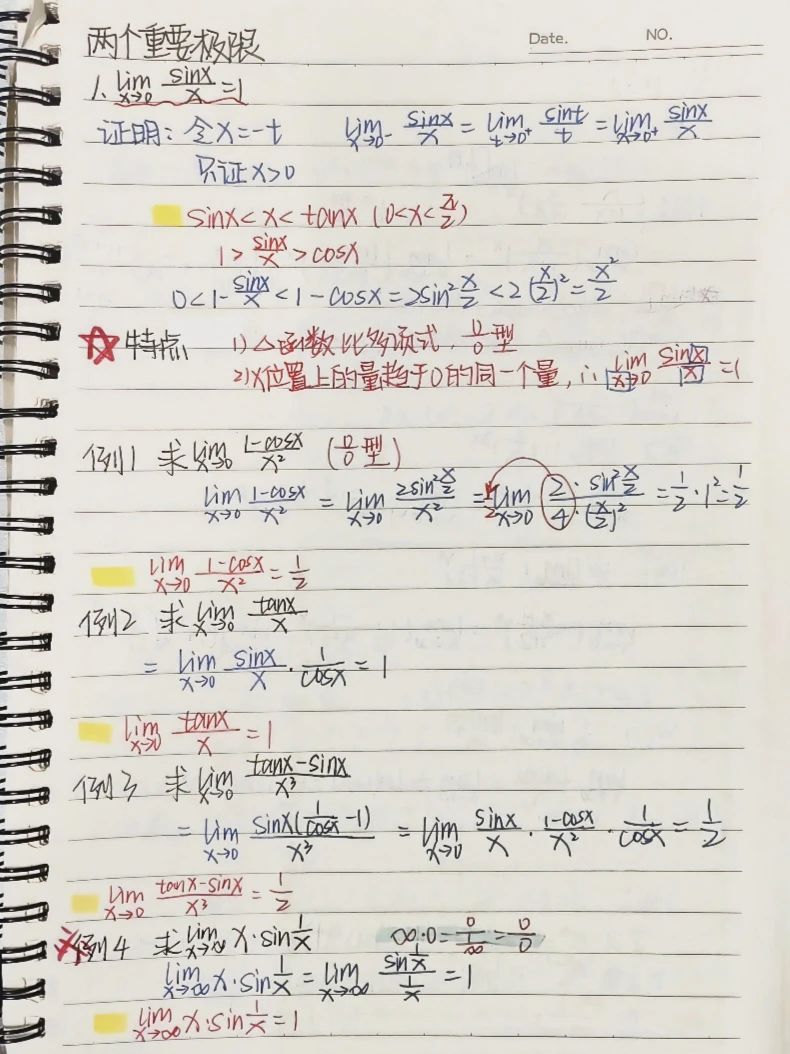 Date. NO.
两个重要极限
1. lim x→0 sinx/x = 1
证明: 令 x=-t lim x→0⁻ sinx/x = lim t→0⁺ sint/t = lim x→0⁺ sinx/x
只证 x>0
sinx < x < tanx (0<x<π/2)
1 > sinx/x > cosx
0 < 1 - sinx/x < 1 - cosx = 2sin² x/2 < 2 (x/2)² = x²/2
☆ 特点 1) △函数比多项式, 0/0 型
2) x位置上的量趋于0的同一个量, ∴ lim x→0 sinx/x = 1
例1 求 lim x→0 1-cosx/x² (0/0 型)
lim x→0 1-cosx/x² = lim x→0 2sin² x/2 / x² = 1/2 lim x→0 2·sin² x/2 / 4·(x/2)² = 1/2 · 1² = 1/2
lim x→0 1-cosx/x² = 1/2
例2 求 lim x→0 tanx/x
= lim x→0 sinx/x · 1/cosx = 1
lim x→0 tanx/x = 1
例3 求 lim x→0 tanx-sinx/x³
= lim x→0 sinx(1/cosx -1)/x³ = lim x→0 sinx/x · 1-cosx/x² · 1/cosx = 1/2
lim x→0 tanx-sinx/x³ = 1/2
例4 求 lim x→∞ x·sin 1/x ∞·0 = 0/(1/∞) = 0/0
lim x→∞ x·sin 1/x = lim x→∞ sin 1/x / 1/x = 1
lim x→∞ x·sin 1/x = 1